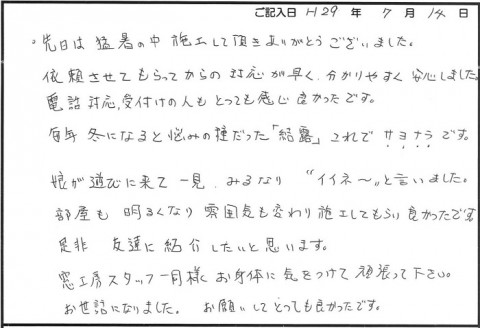 ご記入日 H29 年 7 月 14 日
先日は猛暑の中施工して頂きありがとうございました。
依頼させてもらってからの対応が早く、分かりやすく安心しました。
電話対応、受付けの人もとっても感じ良かったです。
毎年 冬になると悩みの種だった「結露」これで サヨナラ です。
娘が遊びに来て 一見、みるなり "イイネ〜" と言いました。
部屋も 明るくなり 雰囲気も変わり 施工してもらい良かったです
是非 友達に紹介したいと思います。
窓工房スタッフ一同様 お身体に気をつけて 頑張って下さい。
お世話になりました。 お願いしてとっても良かったです。